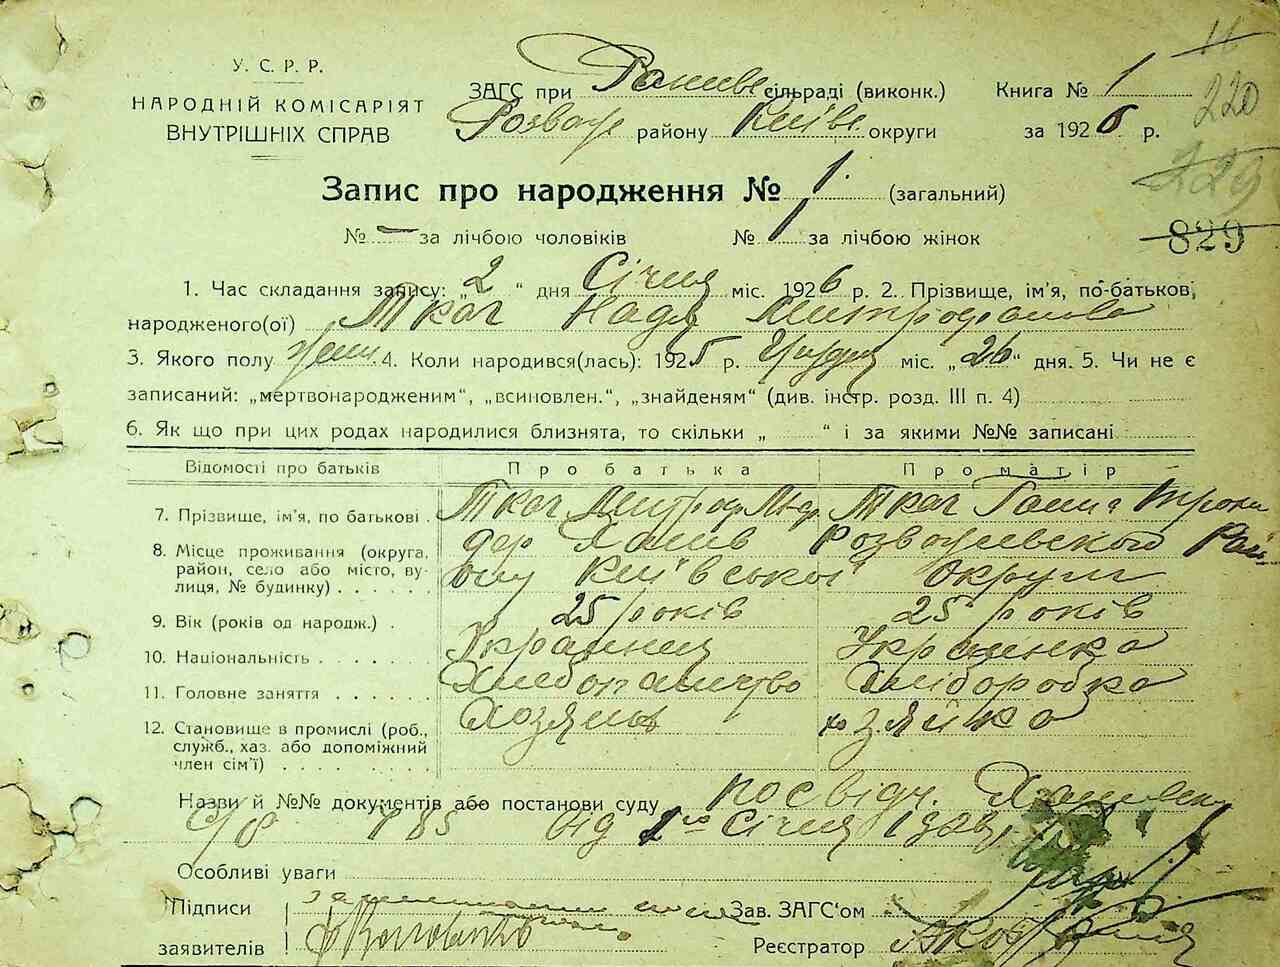 У. С. Р. Р.
НАРОДНІЙ КОМІСАРІЯТ
ВНУТРІШНІХ СПРАВ
ЗАГС при сільраді (виконк.)
Розваж району Київс округи
Книга № 1
за 1926 р.
11
220
229
829
Запис про народження № 1. (загальний)
№ – за лічбою чоловіків № 1 за лічбою жінок
1. Час складання запису: „2“ дня Січня міс. 1926 р. 2. Прізвище, ім'я, по-батькові,
народженого(ої) Ткач Надя Митрофанова
3. Якого полу жін. 4. Коли народився(лась): 1925 р. Грудня міс. „26“ дня. 5. Чи не є
записаний: „мертвонародженим“, „всиновлен.“, „знайденям“ (див. інстр. розд. III п. 4)
6. Як що при цих родах народилися близнята, то скільки „ “ і за якими №№ записані
Відомості про батьків Про батька Про матір
7. Прізвище, ім'я, по батькові Ткач Митроф Ткач Ганна
8. Місце проживання (округа, район, село або місто, вулиця, № будинку) дер Ханів Розважевського Рай
ону Київської Округи
9. Вік (років од народж.) 25 років 25 років
10. Національність Українця Українка
11. Головне заняття Хлібопашество Хліборобка
12. Становище в промислі (роб., служб., хаз. або допоміжний член сім'ї) Хозяїн хозяйка
Назви й №№ документів або постанови суду посвідч.
С/р від 1го Січня
Особливі уваги
Підписи
заявителів
Зав. ЗАГС'ом
Реєстратор